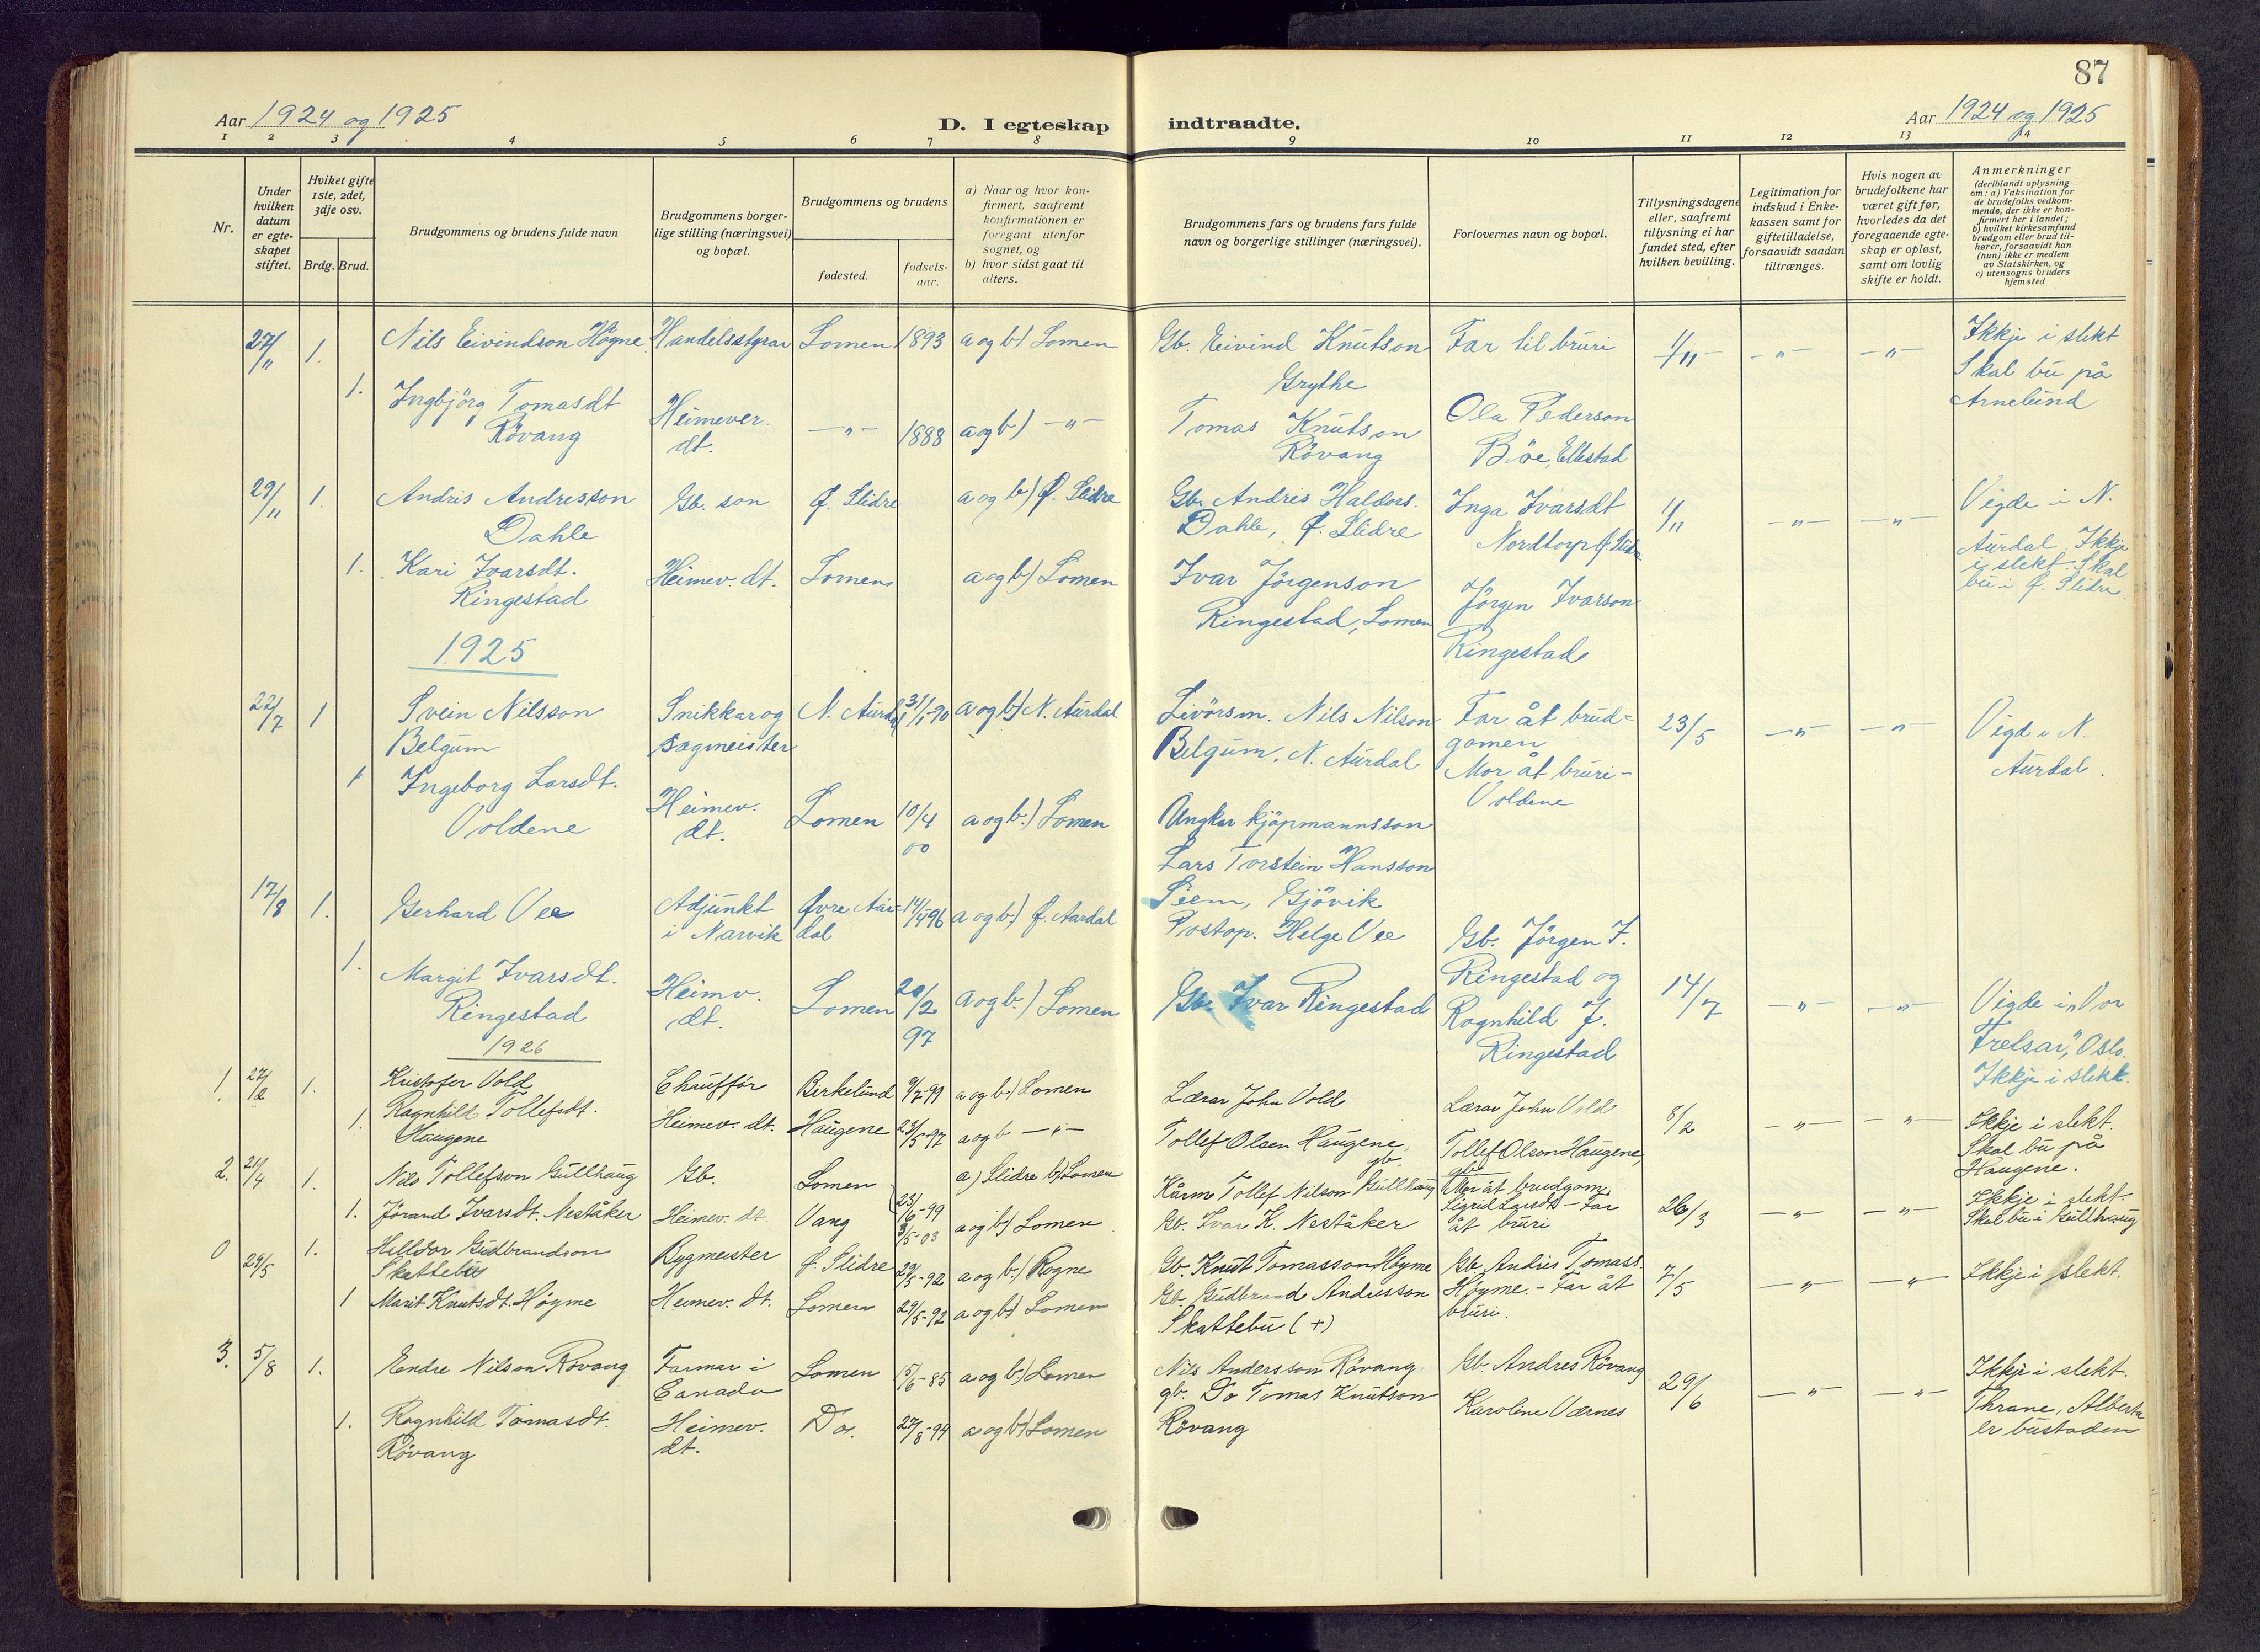 87
Aar 1924 og 1925
D. I egteskap
indtraadte.
Aar 1924 og 1925
1 2 3 4 5 6 7 8 9 10 11 12 13 14
Nr.
Under
hvilken
datum
er egte-
skapet
stiftet.
Hviket gifte
1ste, 2det,
3dje osv.
Brdg.
Brud.
Brudgommens og brudens fulde navn
Brudgommens borger-
lige stilling (næringsvei)
og bopæl.
Brudgommens og brudens
fødested.
fødsels-
aar.
a) Naar og hvor kon-
firmert, saafremt
konfirmationen er
foregaat utenfor
sognet, og
b) hvor sidst gaat til
alters.
Brudgommens fars og brudens fars fulde
navn og borgerlige stillinger (næringsvei).
Forlovernes navn og bopæl.
Tillysningsdagene
eller, saafremt
tillysning ei har
fundet sted, efter
hvilken bevilling.
Legitimation for
indskud i Enke-
kassen samt for
giftetilladelse,
forsaavidt saadan
tiltrænges.
Hvis nogen av
brudefolkene har
været gift før,
hvorledes da det
foregaaende egte-
skap er opløst,
samt om lovlig
skifte er holdt.
Anmerkninger
(deriblandt oplysning
om: a) Vaksination for
de brudefolks vedkom-
mende, der ikke er kon-
firmert her i landet;
b) hvilket kirkesamfund
brudgom eller brud til-
hører, forsaavidt han
(hun) ikke er medlem
av Statskirken, og
c) utensogns bruders
hjemsted
27/11 1. Nils Eivindson Høgne Handelsstyrar Lomen 1893 a og b) Lomen Gb. Eivind Knutson Far til bruri 1/11 - " - - " - Ikkje i slekt
Grythe Skal bu på
1. Ingbjörg Tomasdt Heimever. - " - 1888 a og b) - " - Tomas Knutson Ola Pederson Arnelund
Rövang dt. Rövang Böe, Ellestad
29/11 1. Andris Andresson Gb. son Ø. Slidre a og b) Ø. Slidre Gb. Andris Haldors. Inga Ivarsdt 1/11 - " - - " - Vigde i N.
Dahle Dahle, Ø. Slidre Nordtorp Ø. Slidre Aurdal. Ikkje
1. Kari Ivarsdt. Heimev. dt. Lomen a og b) Lomen Ivar Jörgenson Jörgen Ivarson i slekt. Skal
Ringestad Ringestad, Lomen Ringestad bu i Ø. Slidre.
1925
22/7 1 Svein Nilsson Snikkar og N. Aurdal 31/1-90 a og b) N. Aurdal Nils Nilson Far åt brud- 23/5 - " - - " - Vigd i N.
Belgum sagmeister Belgum, N. Aurdal gomen Aurdal.
1 Ingeborg Larsdt. Heimev. Lomen 10/4 a og b.) Lomen Ungkar kjöpmannsson Mor åt bruri -
Voldene dt. 00 Lars Torstein Hansson Voldene
Siem, Gjövik
17/8 1. Gerhard Vee Adjunkt Øvre Aar- 14/4-96 a og b) Ø. Aardal Postop. Helge Vee Gb. Jörgen I. 14/7 - " - - " - Vigde i „Vor
i Narvik dal Ringestad og Frelsar", Oslo.
1. Margit Ivarsdt. Heimv. Lomen 20/2 a og b.) Lomen Gb. Ivar Ringestad Rognhild J. Ikkje i slekt.
Ringestad dt. 97 Ringestad
1926
1. 27/2 1. Kristofer Vold Chaufför Birkelund 9/7-99 a og b) Lomen Lærar John Vold Lærar John Vold 8/2 - " - - " - Ikkje i slekt.
1. Ragnhild Tollefsdt. Heimev. dt. Haugene 23/5-97 a og b - " - Tollef Olsen Haugene Tollef Olson Haugene, Skal bu på
Haugene gb. gb. Haugene.
2. 21/4 1. Nils Tollefson Gullhaug Gb. Lomen 23/6-99 a) Slidre b) Lomen Kårm. Tollef Nilson Gullhaug Mor åt brudgom 26/3 - " - - " - Ikkje i slekt.
1. Jörand Ivarsdt. Neståker Heimev. dt. Vang 3/5-03 a og b) Lomen Gb. Ivar K. Neståker Sigrid Larsdt - Far Skal bu i Gullhaug
åt bruri
0 29/5 1. Helldor Gudbrandson Bygmeister Ø. Slidre 29/5-92 a og b.) Rogne Gb. Knut Tomasson Höyme Gb. Andris Tomass. 7/5 - " - - " - Ikkje i slekt.
Skattebu
1 Marit Knutsdt. Höyme Heimev. dt. Lomen 29/5-92 a og b) Lomen Gb. Gudbrand Andresson Höyme. - Far åt
Skattebu (+) bruri.
3. 5/8 1. Endre Nilson Rövang Farmar i Lomen 15/6-85 a og b) Lomen Nils Andersson Rövang Gb. Andres Rövang 29/6 - " - - " - Ikkje i slekt.
Canada gb. Do Tomas Knutson Karoline Værnes Thrane, Alberta
1. Ragnhild Tomasdt. Heimev. Do. 27/8-94 a og b) Lomen Rövang er bustaden
Rövang dt.